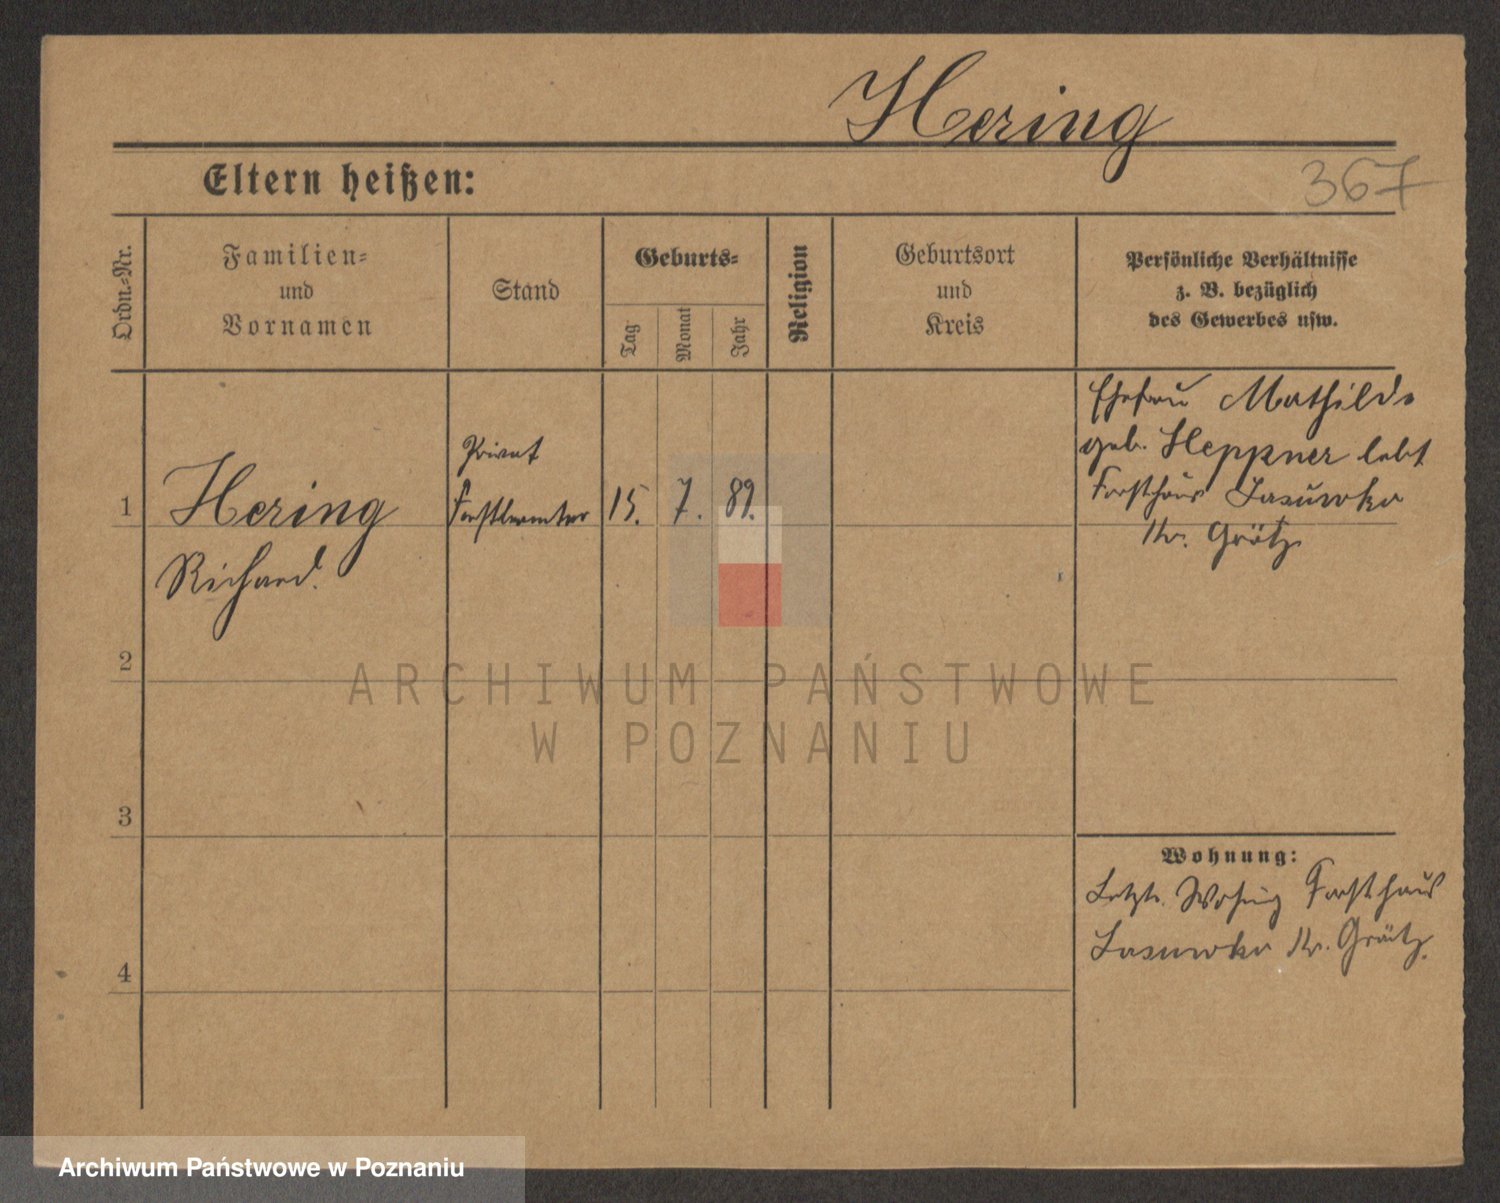 Hering
367
Eltern heißen:
Ordn.-Nr.
Familien-
und
Vornamen
Stand
Geburts-
Tag
Monat
Jahr
Religion
Geburtsort
und
Kreis
Persönliche Verhältnisse
z. B. bezüglich
des Gewerbes usw.
1
Hering
Richard.
Privat
Forstbeamter
15.
7.
89.
Ehefrau Mathilde
geb. Heppner lebt
Forsthaus
Kr. Grätz
2
3
4
Wohnung:
Letzte Wohng Forsthaus
Kr. Grätz.
ARCHIWUM PAŃSTWOWE
W POZNANIU
Archiwum Państwowe w Poznaniu